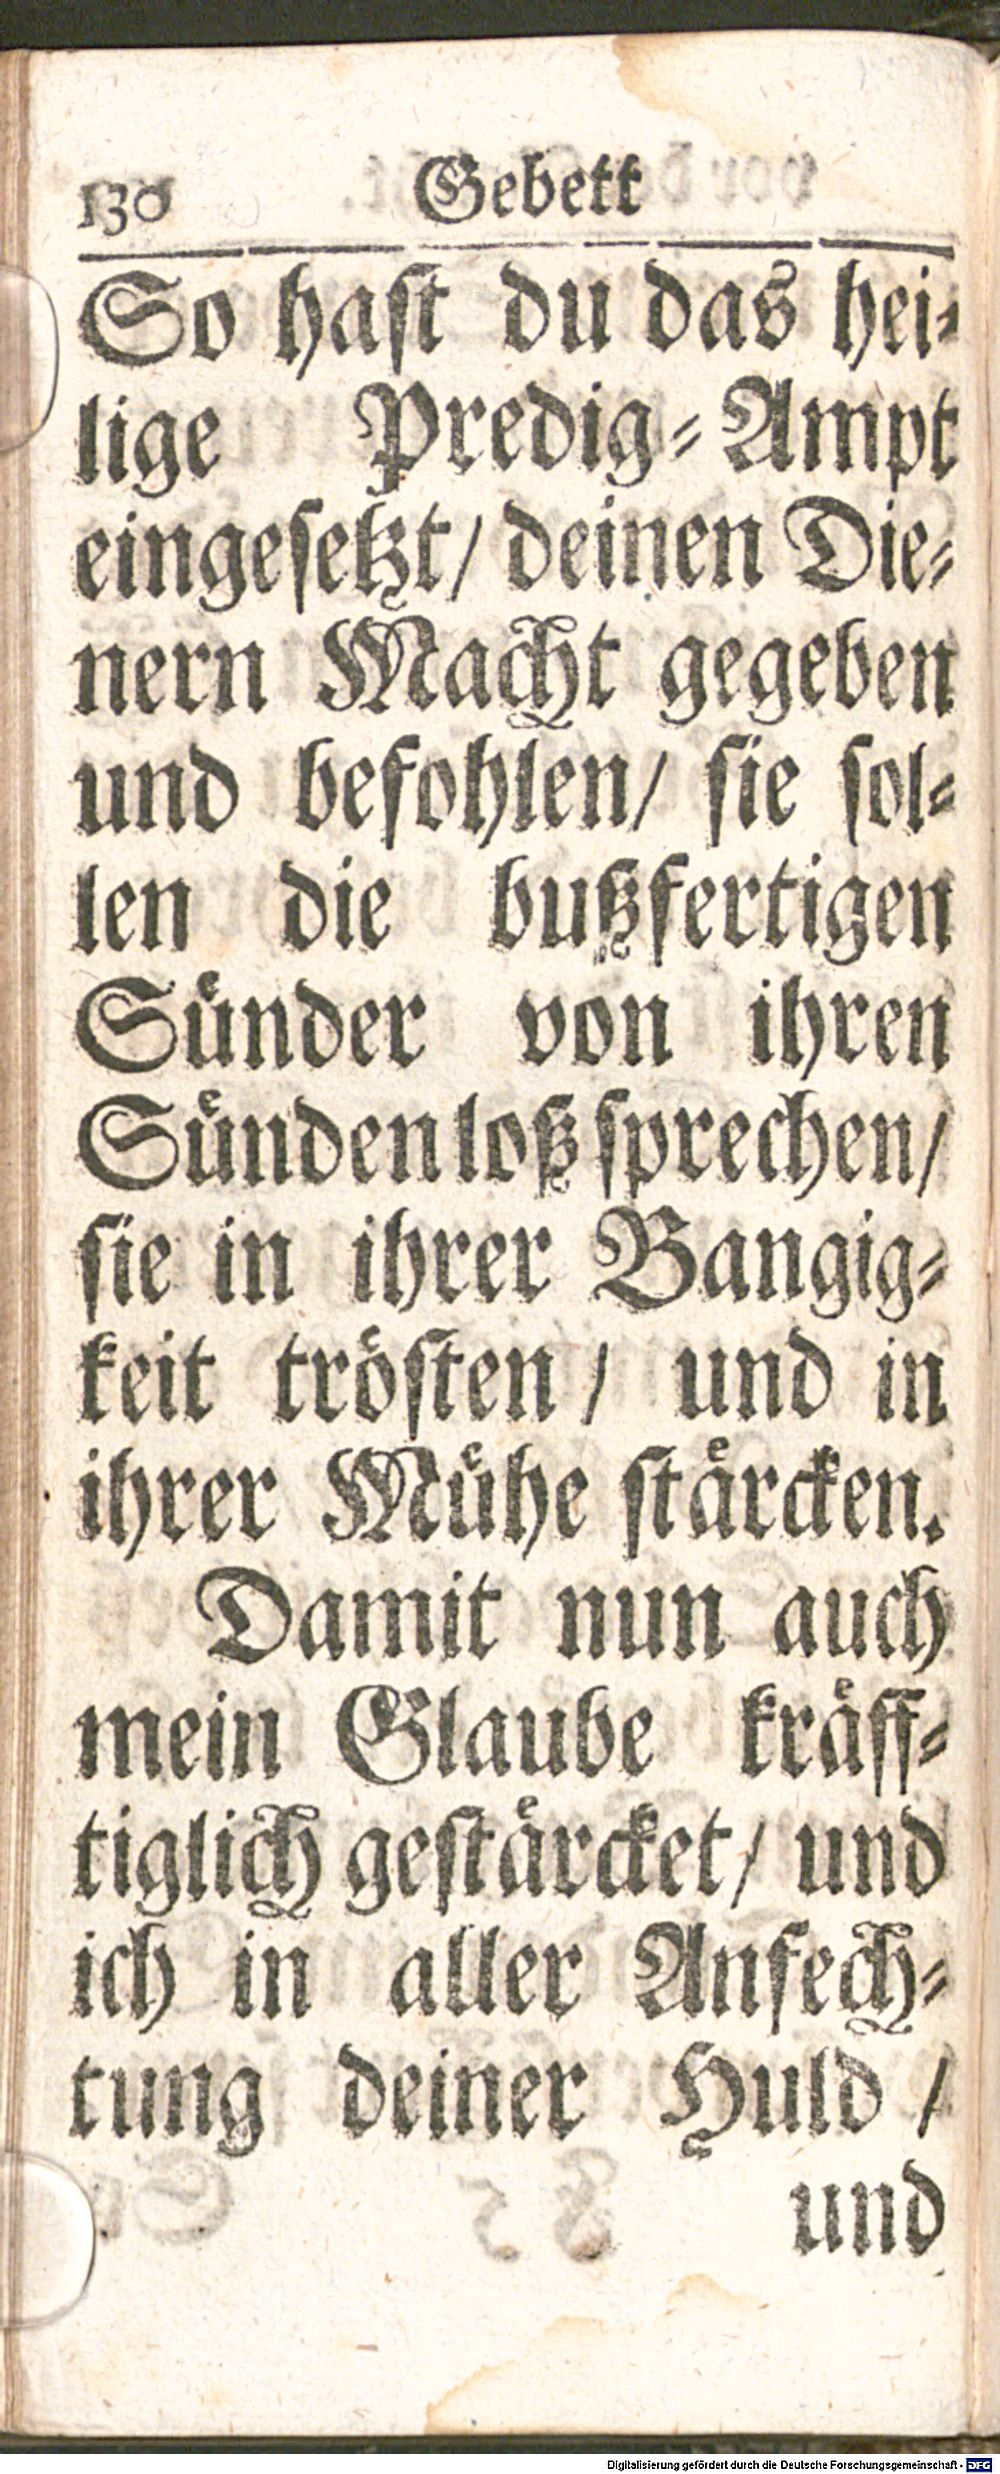 130 Gebett
So haſt du das hei⸗
lige Predig⸗Ampt
eingeſetzt/ deinen Die⸗
nern Macht gegeben
und befohlen/ ſie ſol⸗
len die bußfertigen
Suͤnder von ihren
Suͤnden loß ſprechen/
ſie in ihrer Bangig⸗
keit troͤſten / und in
ihrer Muͤhe ſtaͤrcken.
Damit nun auch
mein Glaube kraͤff⸗
tiglich geſtaͤrcket/ und
ich in aller Anfech⸗
tung deiner Huld /
und
Digitalisierung gefördert durch die Deutsche Forschungsgemeinschaft - DFG